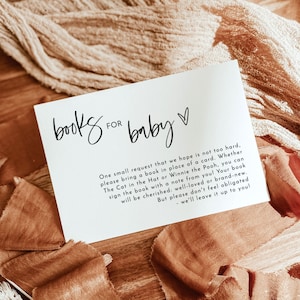 books FOR baby ♡
One small request that we hope is not too hard,
please bring a book in place of a card. Whether
The Cat in the Hat or Winnie the Pooh, you can
sign the book with a note from you! Your book
will be cherished; well-loved or brand-new.
But please don't feel obligated
- we'll leave it up to you!